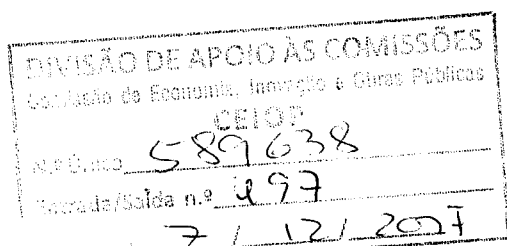 DIVISÃO DE APOIO ÀS COMISSÕES
Comissão de Economia, Inovação e Obras Públicas
CEIOP
N.º Único 589638
Entrada/Saída n.º 497
7 / 12 / 2007